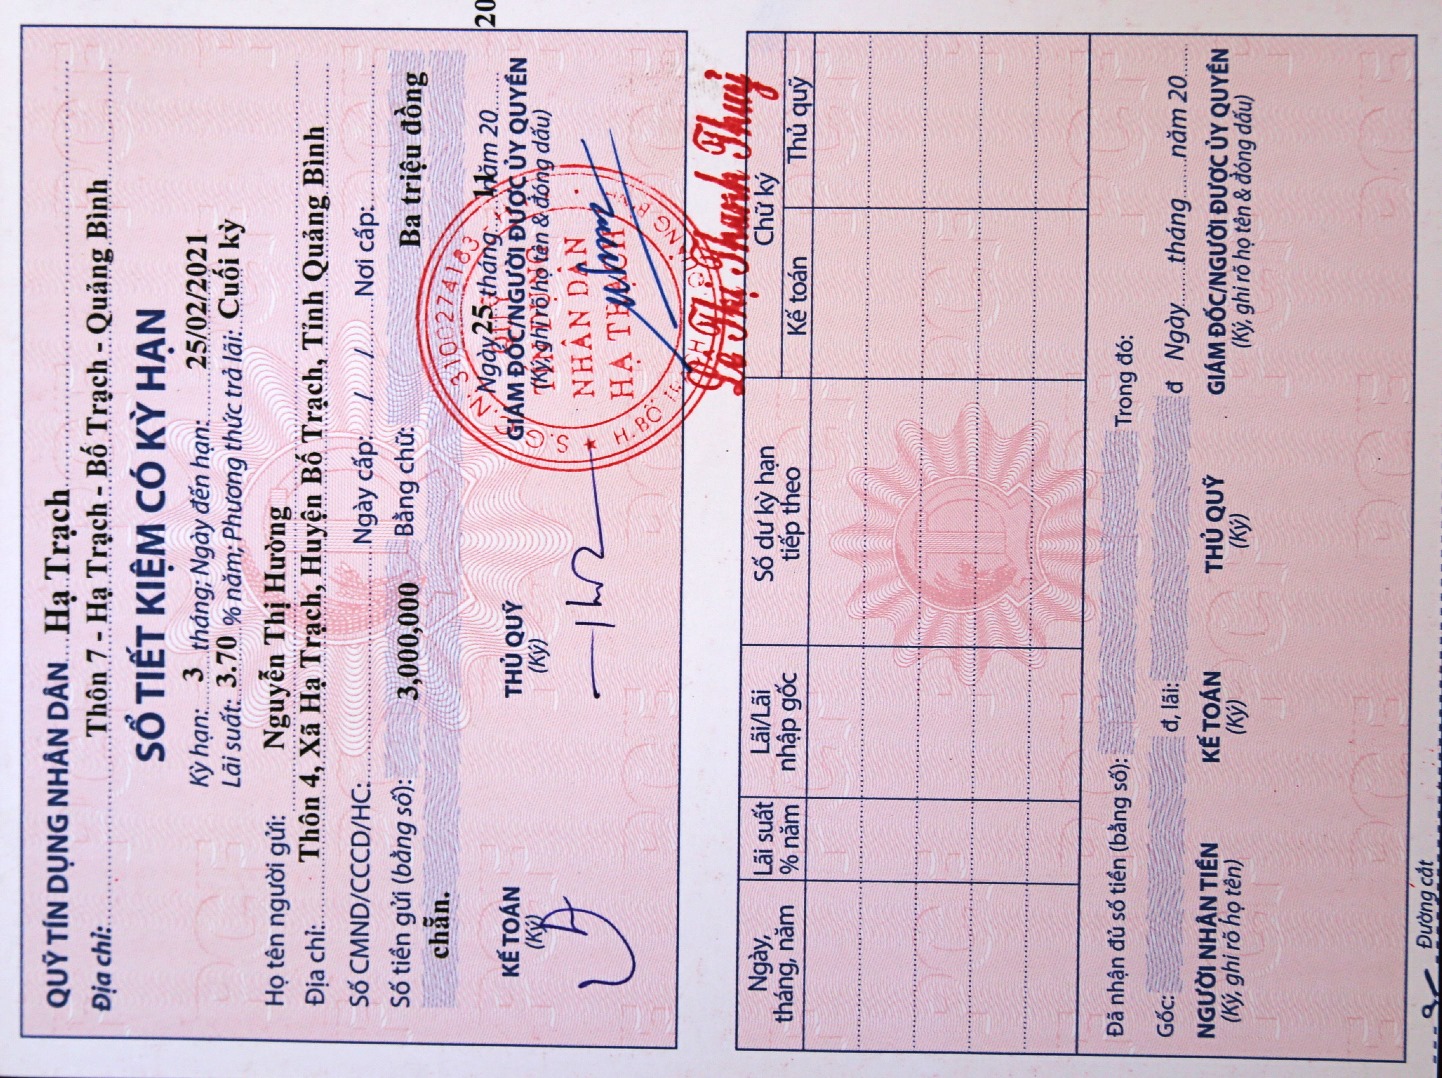 QUỸ TÍN DỤNG NHÂN DÂN Hạ Trạch
Địa chỉ: Thôn 7 - Hạ Trạch - Bố Trạch - Quảng Bình
SỔ TIẾT KIỆM CÓ KỲ HẠN
Kỳ hạn: 3 tháng; Ngày đến hạn: 25/02/2021
Lãi suất: 3.70 % năm; Phương thức trả lãi: Cuối kỳ
Họ tên người gửi: Nguyễn Thị Hường
Địa chỉ: Thôn 4, Xã Hạ Trạch, Huyện Bố Trạch, Tỉnh Quảng Bình
Số CMND/CCCD/HC: Ngày cấp: / / Nơi cấp:
Số tiền gửi (bằng số): 3,000,000 Bằng chữ: Ba triệu đồng
chẵn.
Ngày 25 tháng 11 năm 20 20
KẾ TOÁN THỦ QUỸ GIÁM ĐỐC/NGƯỜI ĐƯỢC ỦY QUYỀN
(Ký) (Ký) (Ký, ghi rõ họ tên & đóng dấu)
S.G.C.N. 3100274183
QUỸ
TÍN DỤNG
NHÂN DÂN
HẠ TRẠCH
Lê Thị Thanh Thuỷ
Ngày, tháng, năm
Lãi suất % năm
Lãi/Lãi nhập gốc
Số dư kỳ hạn tiếp theo
Chữ ký
Kế toán Thủ quỹ
Đã nhận đủ số tiền (bằng số): Trong đó:
Gốc: đ, lãi: đ Ngày tháng năm 20
NGƯỜI NHẬN TIỀN KẾ TOÁN THỦ QUỸ GIÁM ĐỐC/NGƯỜI ĐƯỢC ỦY QUYỀN
(Ký, ghi rõ họ tên) (Ký) (Ký) (Ký, ghi rõ họ tên & đóng dấu)
Đường cắt